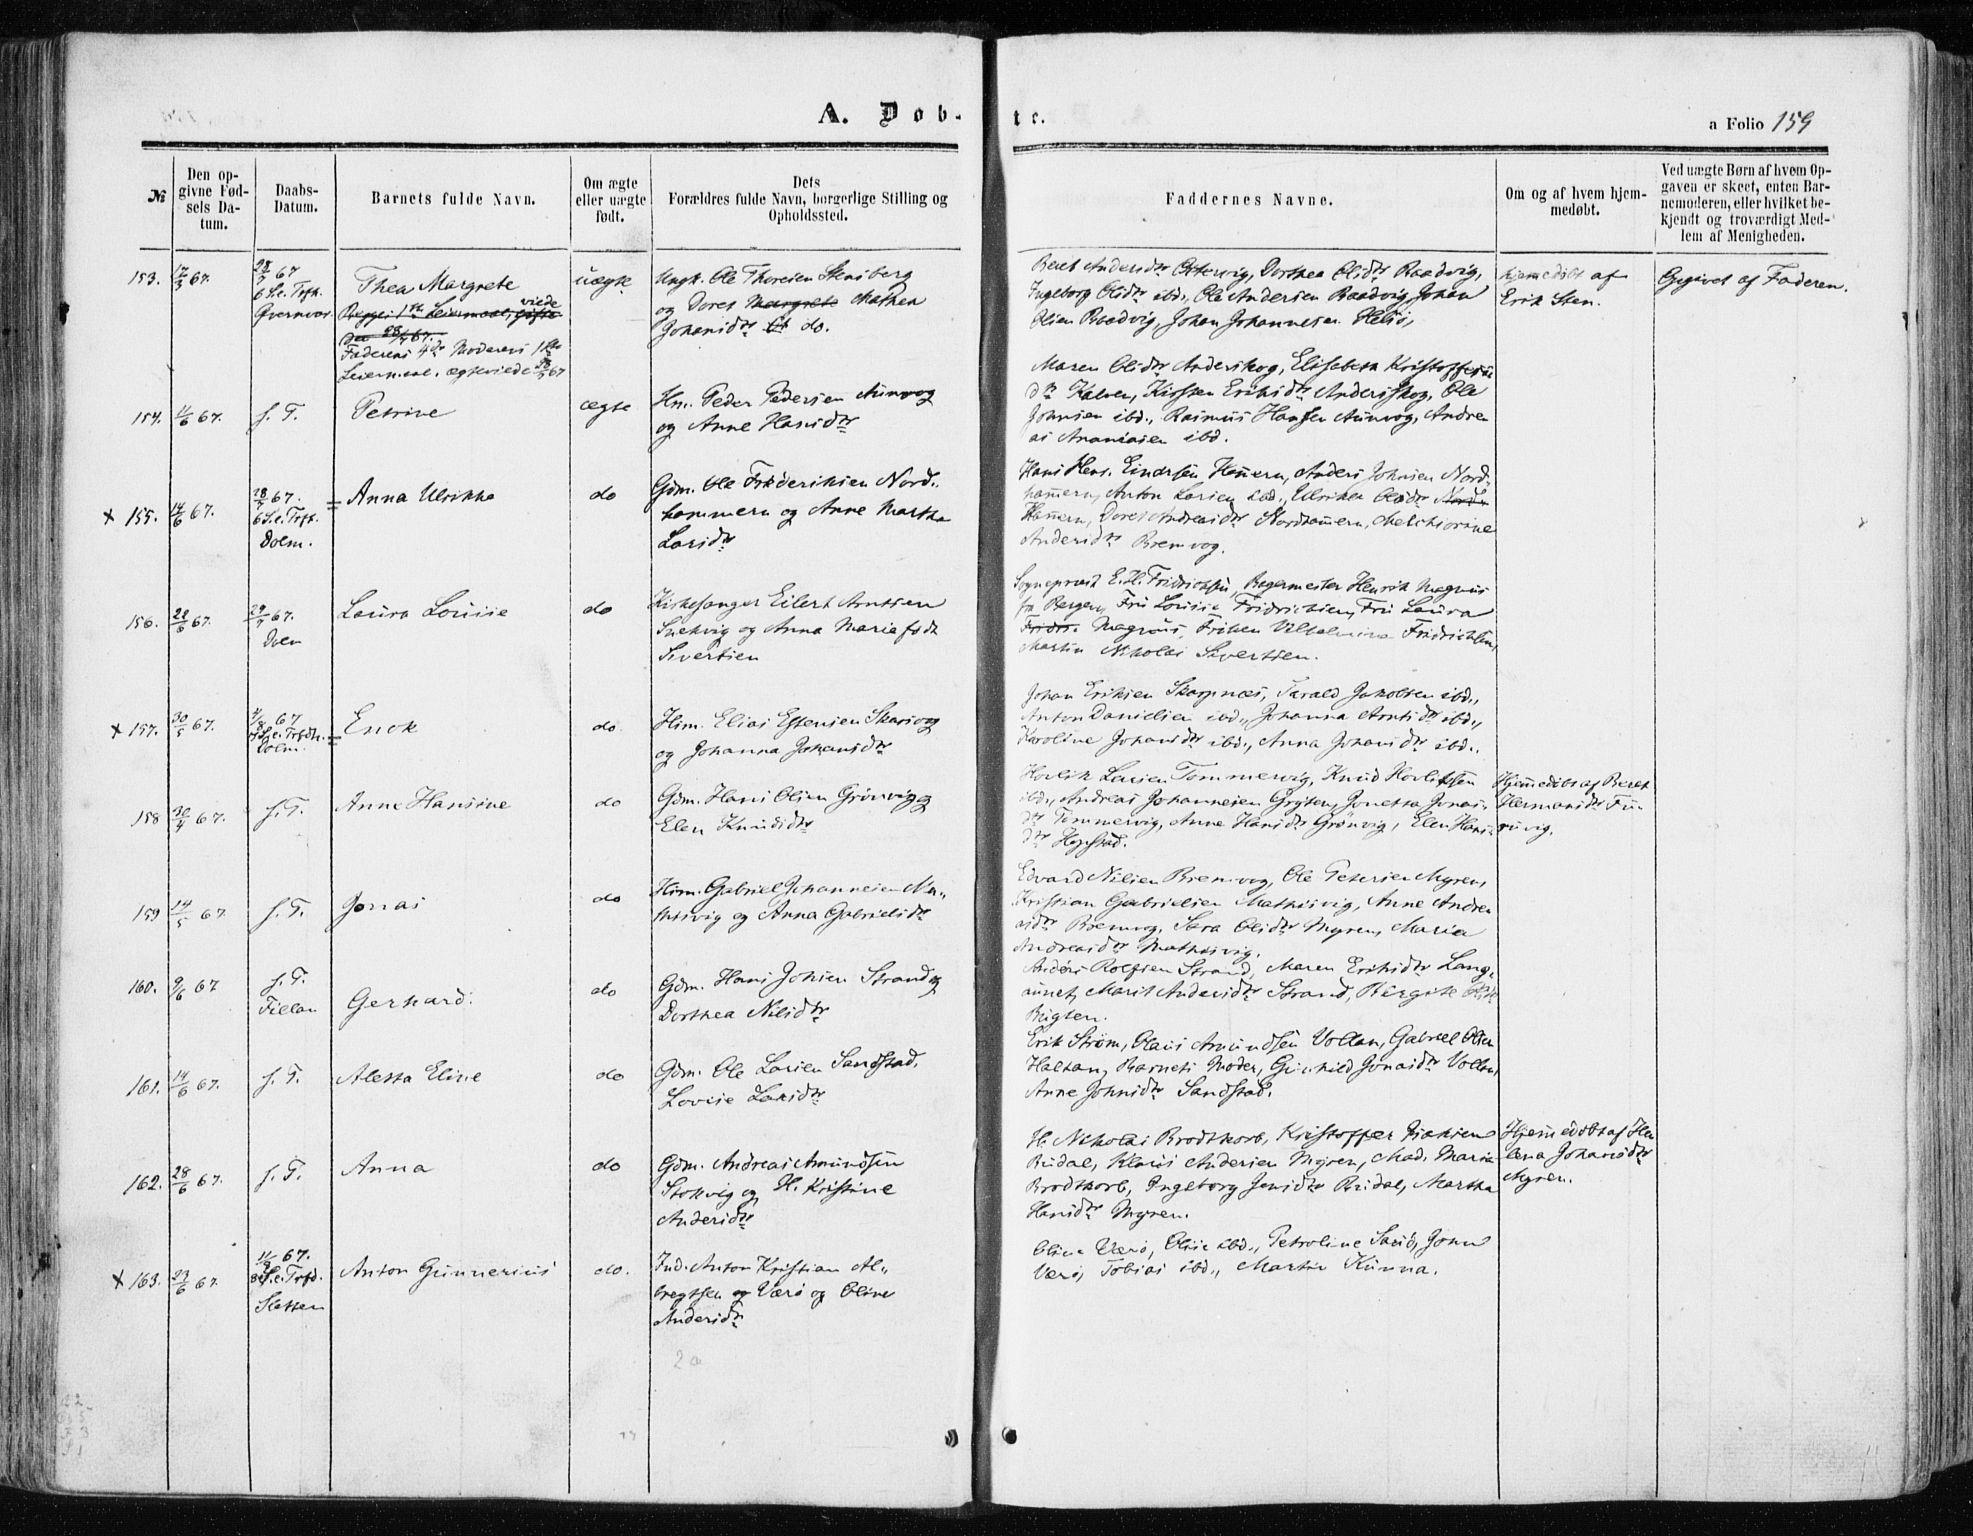 A. Døb-
te.
a Folio 159
№
Den op-
givne Fød-
sels Da-
tum.
Daabs-
Datum.
Barnets fulde Navn.
Om ægte
eller uægte
født.
Dets
Forældres fulde Navn, borgerlige Stilling og
Opholdssted.
Faddernes Navne.
Om og af hvem hjem-
medøbt.
Ved uægte Børn af hvem Op-
gaven er skeet, enten Bar-
nemoderen, eller hvilket be-
kjendt og troværdigt Med-
lem af Menigheden.
153. 67.
28/7 67
6 S. e. Tref.
Qvernvær
Thea Margrete
Begges 1ste Leiermaal, viede
den 28/7 67.
Faderens 4de Moderens 1ste
Leiermaal. ægteviede 28/7 67
uægte
Ungk. Ole Thoresen Stensberg
og Doret Margrete Mathea
Johansdtr do.
Beret Andersdtr Ottervig, Dorthea Olsdtr Raadvig,
Ingeborg Olsdtr ibd., Ole Andersen Raadvig, Johan
Olsen Raadvig, Johan Johannesen
Hjemmedøbt af
Erik Sten.
Opgivet af Faderen.
154. 11/6 67. s. T. Petrine ægte
Hm. Peder Pedersen Aunvog
og Anne Hansdtr
Maren Olsdtr Anderskog, Elisabeth Kristoffers
dtr Kalven, Kirsten Eriksdtr Andersskog, Ole
Johnsen ibd., Rasmus Hansen Aunvog, Andre
as Ananiasen ibd.
x 155. 14/6 67.
28/7 67.
6 S. e. Tref.
Dolm.
Anna Ulrikke do
Gdm. Ole Frederiksen Nord-
hammern og Anne Martha
Larsdtr
Hans Hens. Einarsen Hamern, Anders Johnsen Nord-
hamern, Anton Larsen ibd., Ulrikke Olsdtr Nord-
Hamern, Doret Andreasdtr Nordhamern, Melchiorine
Andersdtr Bremvog.
156. 28/6 67.
29/7 67.
Dolm
Laura Louise do
Kirkesanger Eilert Arntsen
Snekvig og Anna Marie født
Sivertsen
Sogneprest E. H. Fridrichsen, Bagermester Henrik Magnus
fra Bergen, Fru Louise Fridrichsen, Fru Laura
Fridr. Magnus, Frøken Vilhelmine Fridrichsen,
Martin Nikolai Sivertsen.
x 157. 30/5 67.
4/8 67
7 S. e. Trefdh.
Dolm.
Enok do.
Hm. Elias Estensen Skarsvog
og Johanna Johansdtr
Johan Eriksen Skarpnæs, Tarald Jakobsen ibd.,
Anton Danielsen ibd., Johanna Arntsdtr ibd.,
Karoline Johansdtr ibd., Anna Johansdtr ibd..
158 30/4 67. s. T. Anne Hansine do
Gdm. Hans Olsen Grønvig og
Elen Knudsdtr
Hovlik Larsen Tømmervig, Knud Hovliksen
ibd., Andreas Johannesen Gryten, Jonetta Jonas-
dtr Tømmervig, Anne Hansdtr Grønvig, Elen Hans-
dtr Hopstad.
Hjemmedøbt af Beret
Hermansdtr Fu-
ruvig.
159 14/5 67 s. T. Jonas do
Hm. Gabriel Johannesen Ma-
thisvig og Anna Gabrielsdtr
Edvard Nilsen Bremvog, Ole Petersen Myren,
Kristian Gabrielsen Mathisvig, Anne Andre
asdtr Bremvog, Sara Olsdtr Myren, Maria
Andreasdtr Mathisvig.
160. 9/6 67
s. T.
Fillan
Gerhard. do
Gdm. Hans Johsen Strand og
Dorthea Nilsdtr
Anders Rolfsen Strand, Maren Eriksdtr Lang-
aunet, Marit Andersdtr Strand, Birgitte
161. 14/6 67. s. T. Aletta Eline do
Gdm. Ole Larsen Sandstad,
Lovise Larsdtr
Erik Strøm, Olaus Amundsen Vollan, Gabriel Olsen
Haltan, Barnets Moder, Gunhild Jonasdtr Vollan,
Anne Johnsdtr Sandstad.
162. 28/6 67. s. T. Anna do
Gdm. Andreas Amundsen
Stokvig og H. Kristine
Andersdtr
H. Nikolai Brodtkorb, Kristoffer Isaksen
Rudal, Klaus Andersen Myren, Mad. Maria
Brodtkorb, Ingeborg Jensdtr Rudal, Martha
Hansdtr Myren.
Hjemmedøbt af Hel
ena Johansdtr
Myren.
x 163. 23/6 67.
11/8 67.
8 S. e. Trfd.
Sletten
Anton Gunnerius do.
Ind. Anton Kristian Al-
bregtsen og Værø og Oline
Andersdtr
Oline Værø, Olise ibd., Petroline Sørø, John
Værø, Tobias ibd., Martin Kunna.
2a